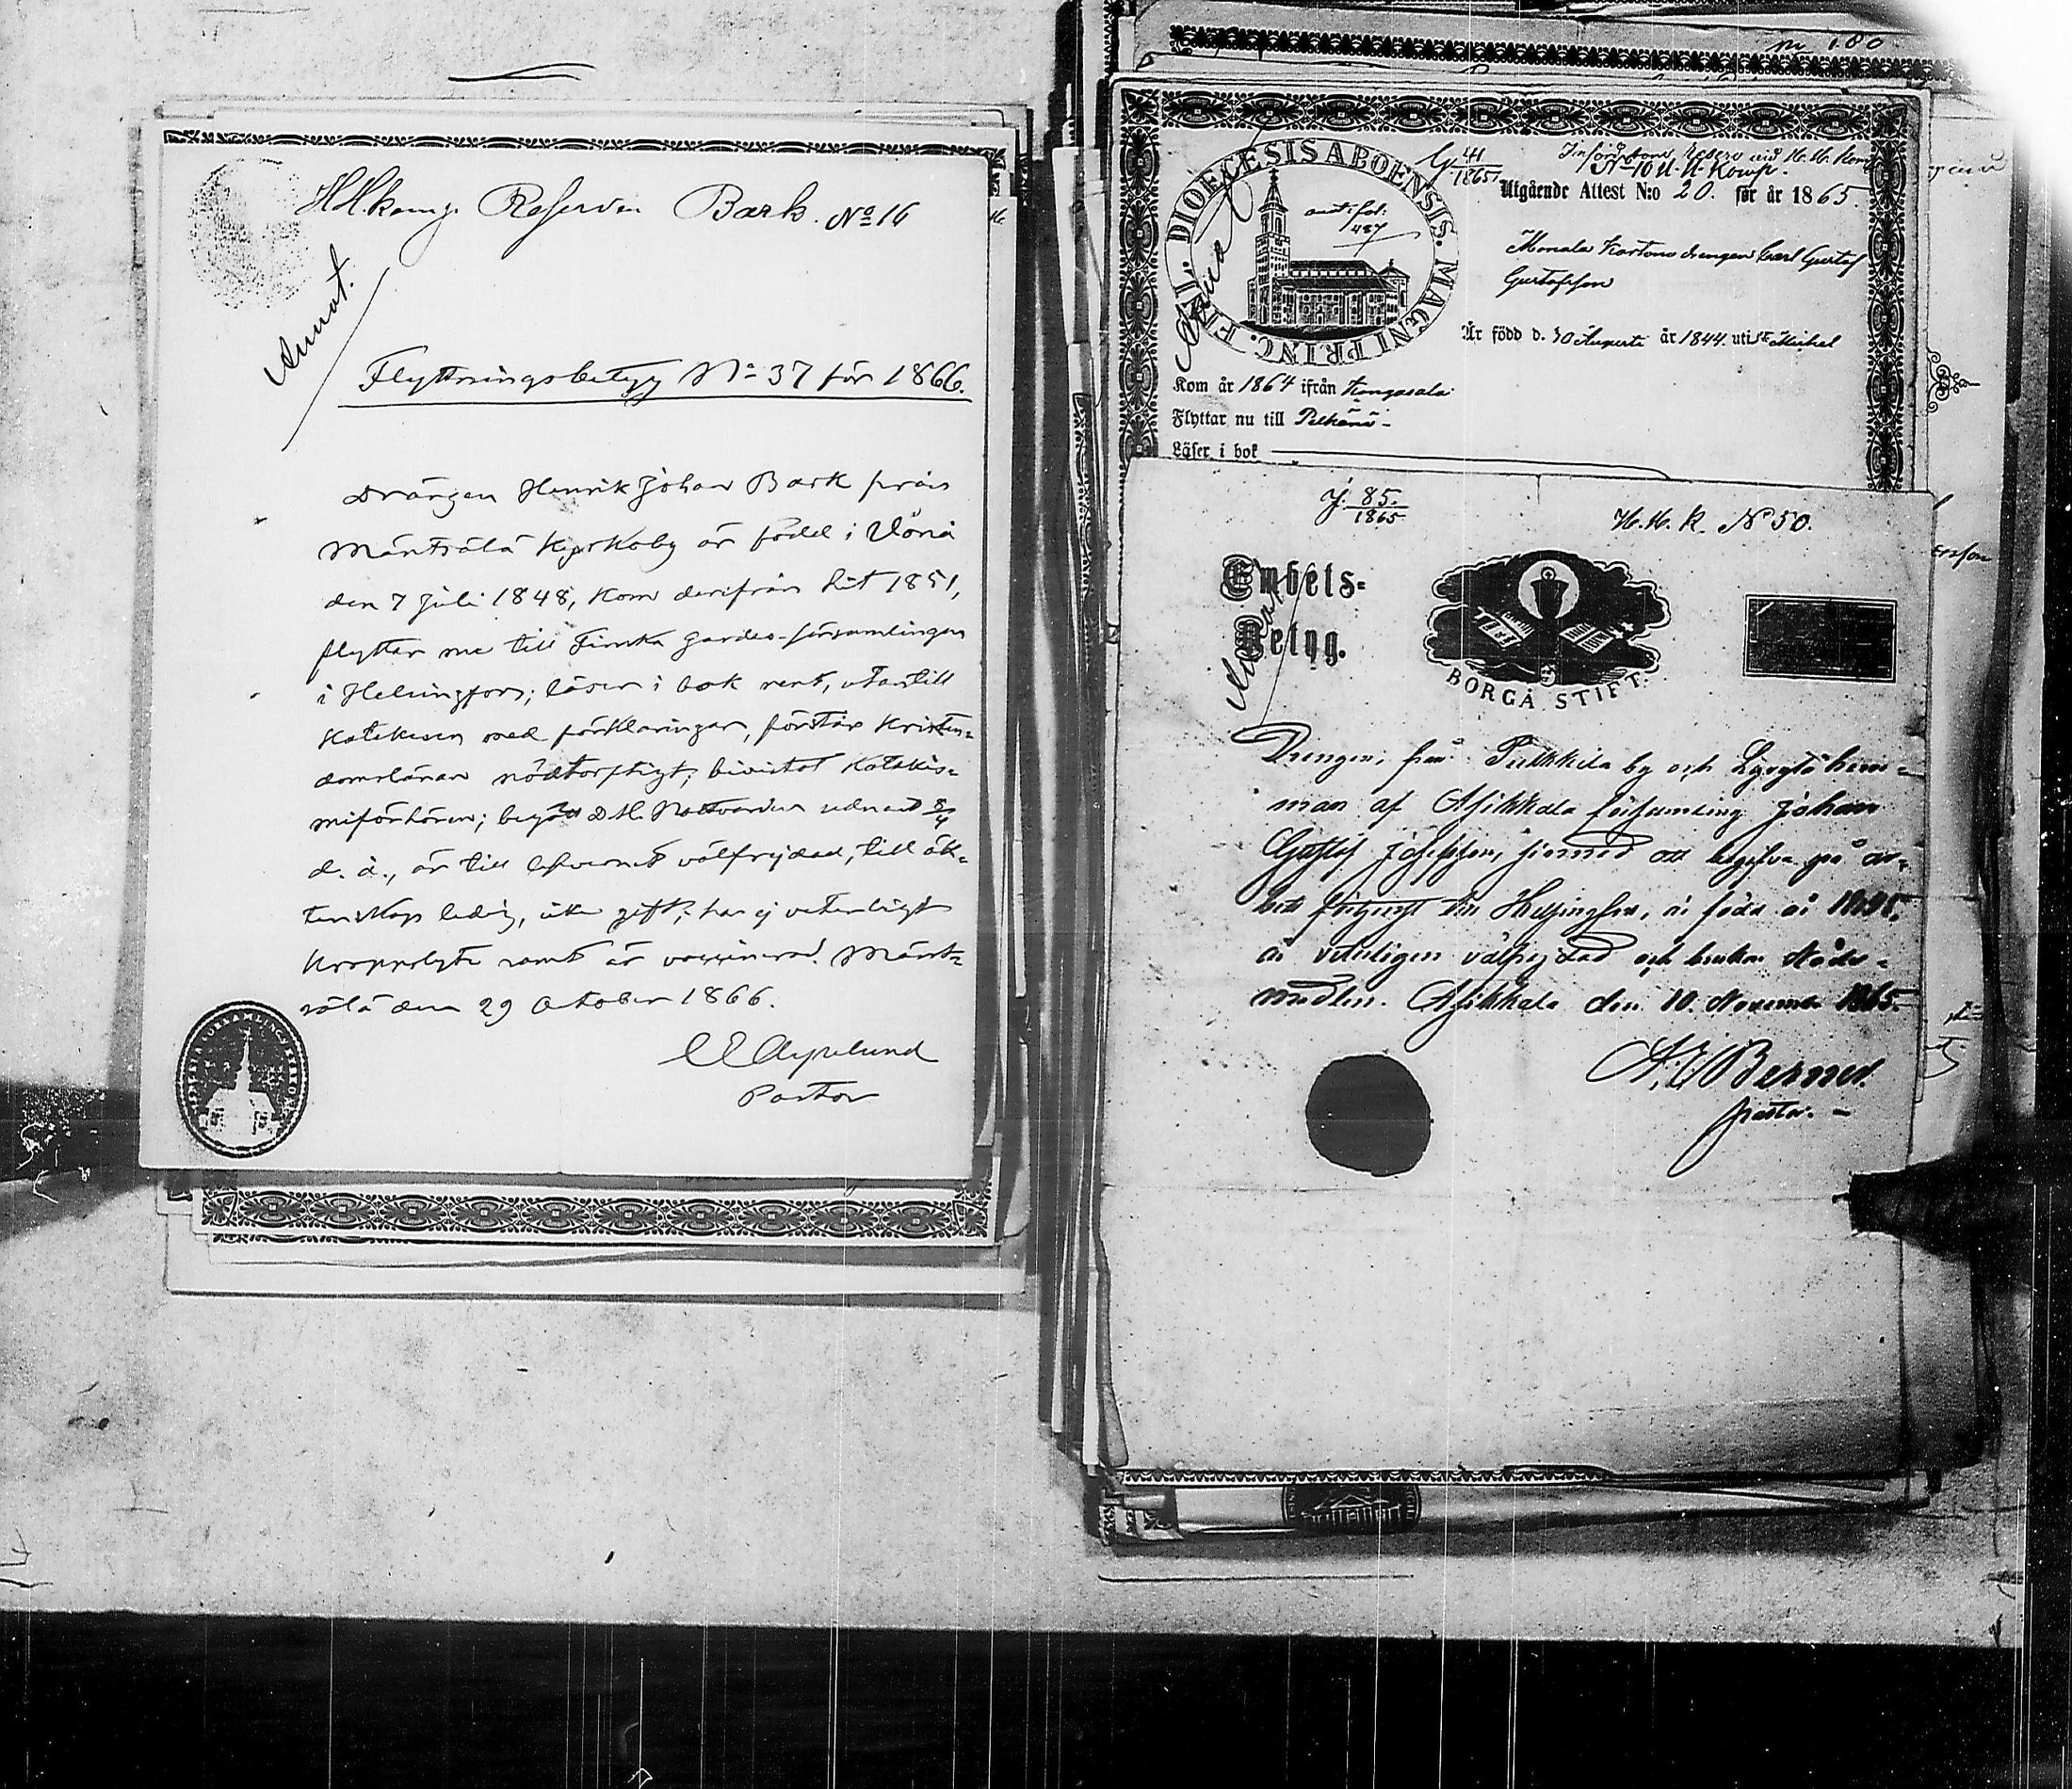 HHkomp. Reserven Bark. No 16
Annot.
Flyttningsbetyg No 37 för 1866.
Drängen Henrik Johan Bark från
Mäntsälä Kyrkoby är född i Vörå
den 7 Juli 1848, kom derifrån hit 1851,
flyttar nu till Finska gardes-församlingen
i Helsingfors; läser i bok rent, utantill
Katekesen med förklaringar, förstår Kristen-
domsläran nödtorftigt; bivistat Katekis-
miförhören; begått D.H. Nattvarden sednast 8/4
d. å., är till lefvernet välfrejdad, till äk-
tenskap ledig, icke gift; har ej veterligt
kroppslyte samt är vaccinerad. Mänt-
sälä den 29 October 1866.
Pastor
No 180
DIOECESIS ABOENSIS. MAGNI PRINC. FINL.
ant. fol.
487
41
1865
No 10 U. U. Komp.
Utgående Attest N:o 20. för år 1865.
Monala Kartano drengen Carl Gustaf
Gustafsson
Är född d. 30 Augusti år 1844. uti St Michel
Kom år 1864 ifrån Kangasala
Flyttar nu till Pelkäne -
Läser i bok
J. 85.
1865
H. H. K. No 50.
Embets-
Betyg.
Annot.
BORGÅ STIFT.
Drengen, från Pulkkila by och
man af Asikkala församling Johan
Gustaf Josefsson, som ärnar begifva på ar-
till Helsingfors, är född år
är veterligen välfrejdad och brukar Nåde-
medlen. Asikkala den 10. November 1865.
Pastor. -
ersson